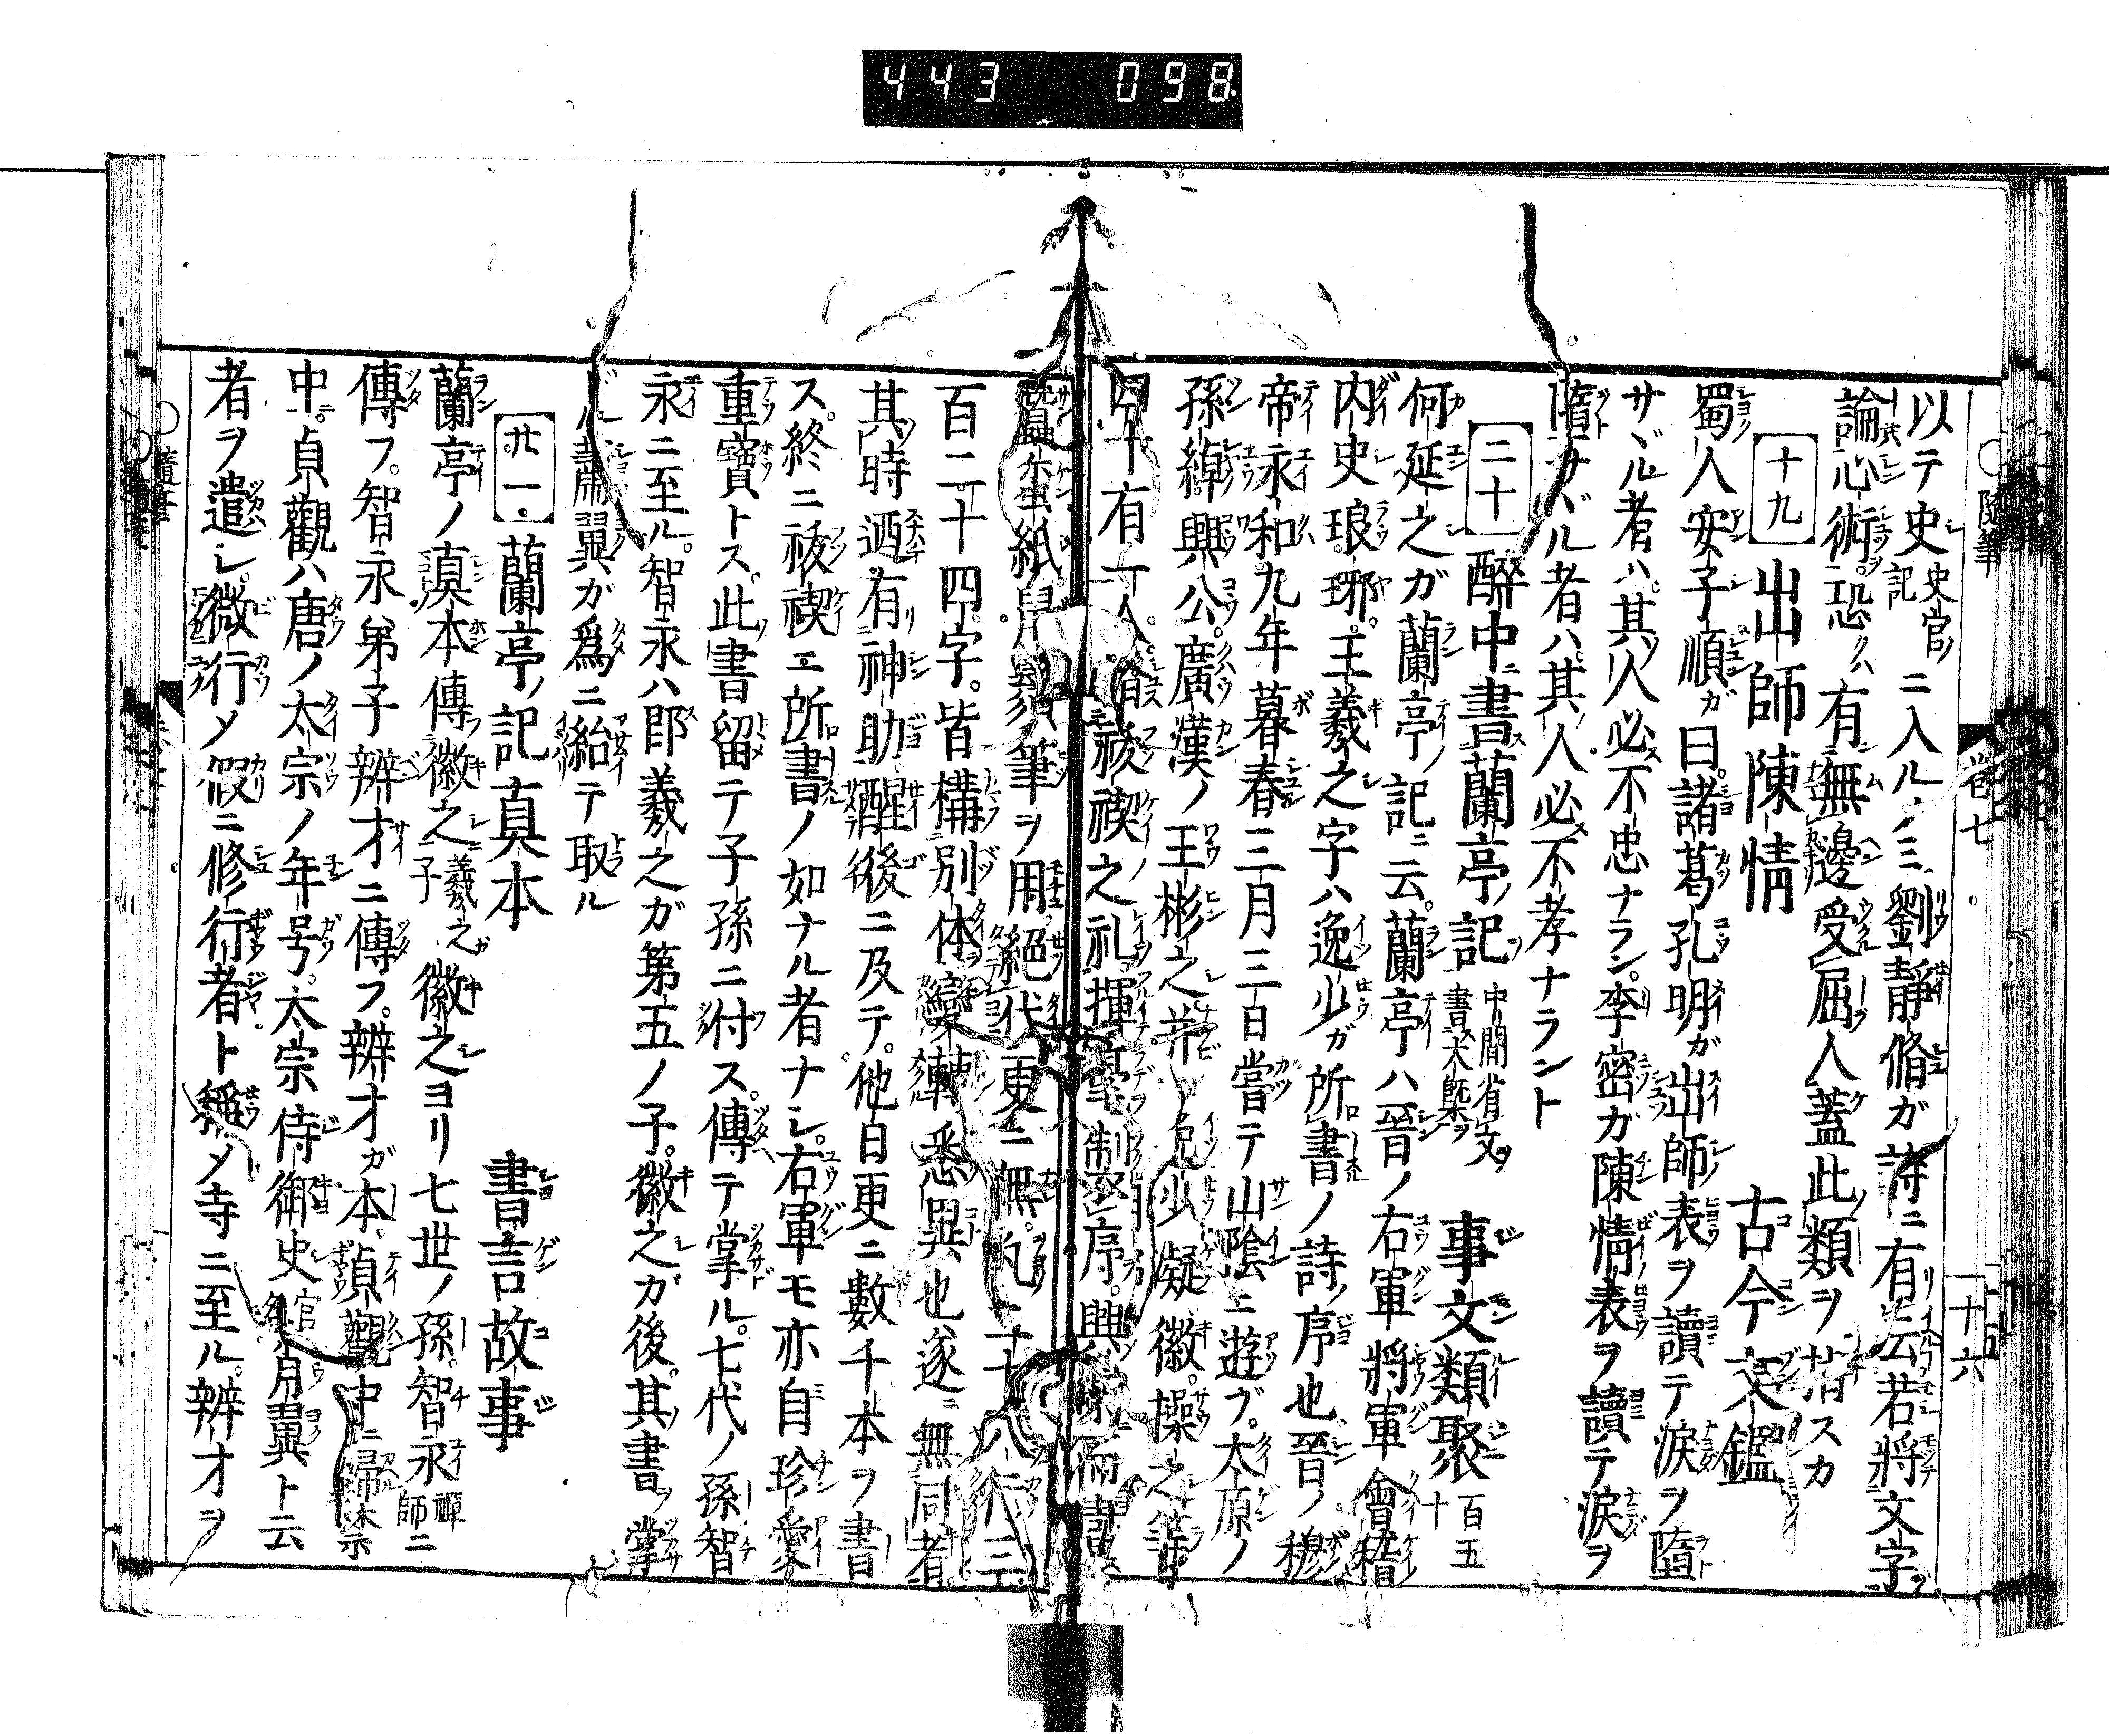 443 098
隨筆 卷七 十六
以テ史 史官ノ記 ニ入ル丶ミ劉靜脩ガ詩ニ有云若將文字ヲ
論心術恐ハ有無邊受屈人蓋此類ヲ指スカ
十九 出師陳情 古今文鑑
蜀人安子順ガ曰諸葛孔明ガ出師表ヲ讀テ淚ヲ墮
サヾル者ハ其人必不忠ナラン李密ガ陳情表ヲ讀テ淚ヲ
墮サヾル者ハ其人必不孝ナラント
二十 醉中書蘭亭記 中間省文ヲ書大槩ヲ 事文類聚 百五十
何延之ガ蘭亭ノ記ニ云蘭亭ハ晉ノ右軍將軍會稽ノ
内史琅琊王羲之字ハ逸少ガ所書ノ詩ノ序也晉ノ穆
帝永和九年暮春三月三日嘗テ山陰ニ遊ブ太原ノ
孫綽興公廣漢ノ王彬之并逸少凝徽操之等
四十有一人 祓禊之礼揮毫制序興 而書
蠶 紙鼠鬚筆ヲ用絕代更ニ無凡二十八行三
百二十四字皆構別体 轉悉異也遂無同者
其時迺有神助醒後ニ及テ他日更ニ數千本ヲ書
ス終ニ祓禊エ所書ノ如ナル者ナシ右軍モ亦自珍愛
重寶トス此書留テ子孫ニ付ス傳テ掌ル七代ノ孫智
永ニ至ル智永ハ郎羲之ガ第五ノ子徽之ガ後其書ヲ掌
ル蕭翼ガ爲ニ紿テ取ル
廿一 蘭亭記真本 書言故事
蘭亭ノ真本傳徽之 羲之ガ子 徽之ヨリ七世ノ孫智永 禪師 ニ
傳フ智永弟子辨才ニ傳フ辨才ガ本貞觀中ニ歸 太宗
中貞觀ハ唐ノ太宗ノ年号太宗侍御史 官名 肖翼ト云
者ヲ遣レ微行メ假ニ修行者ト稱メ寺ニ至ル辨才ヲ
隨筆